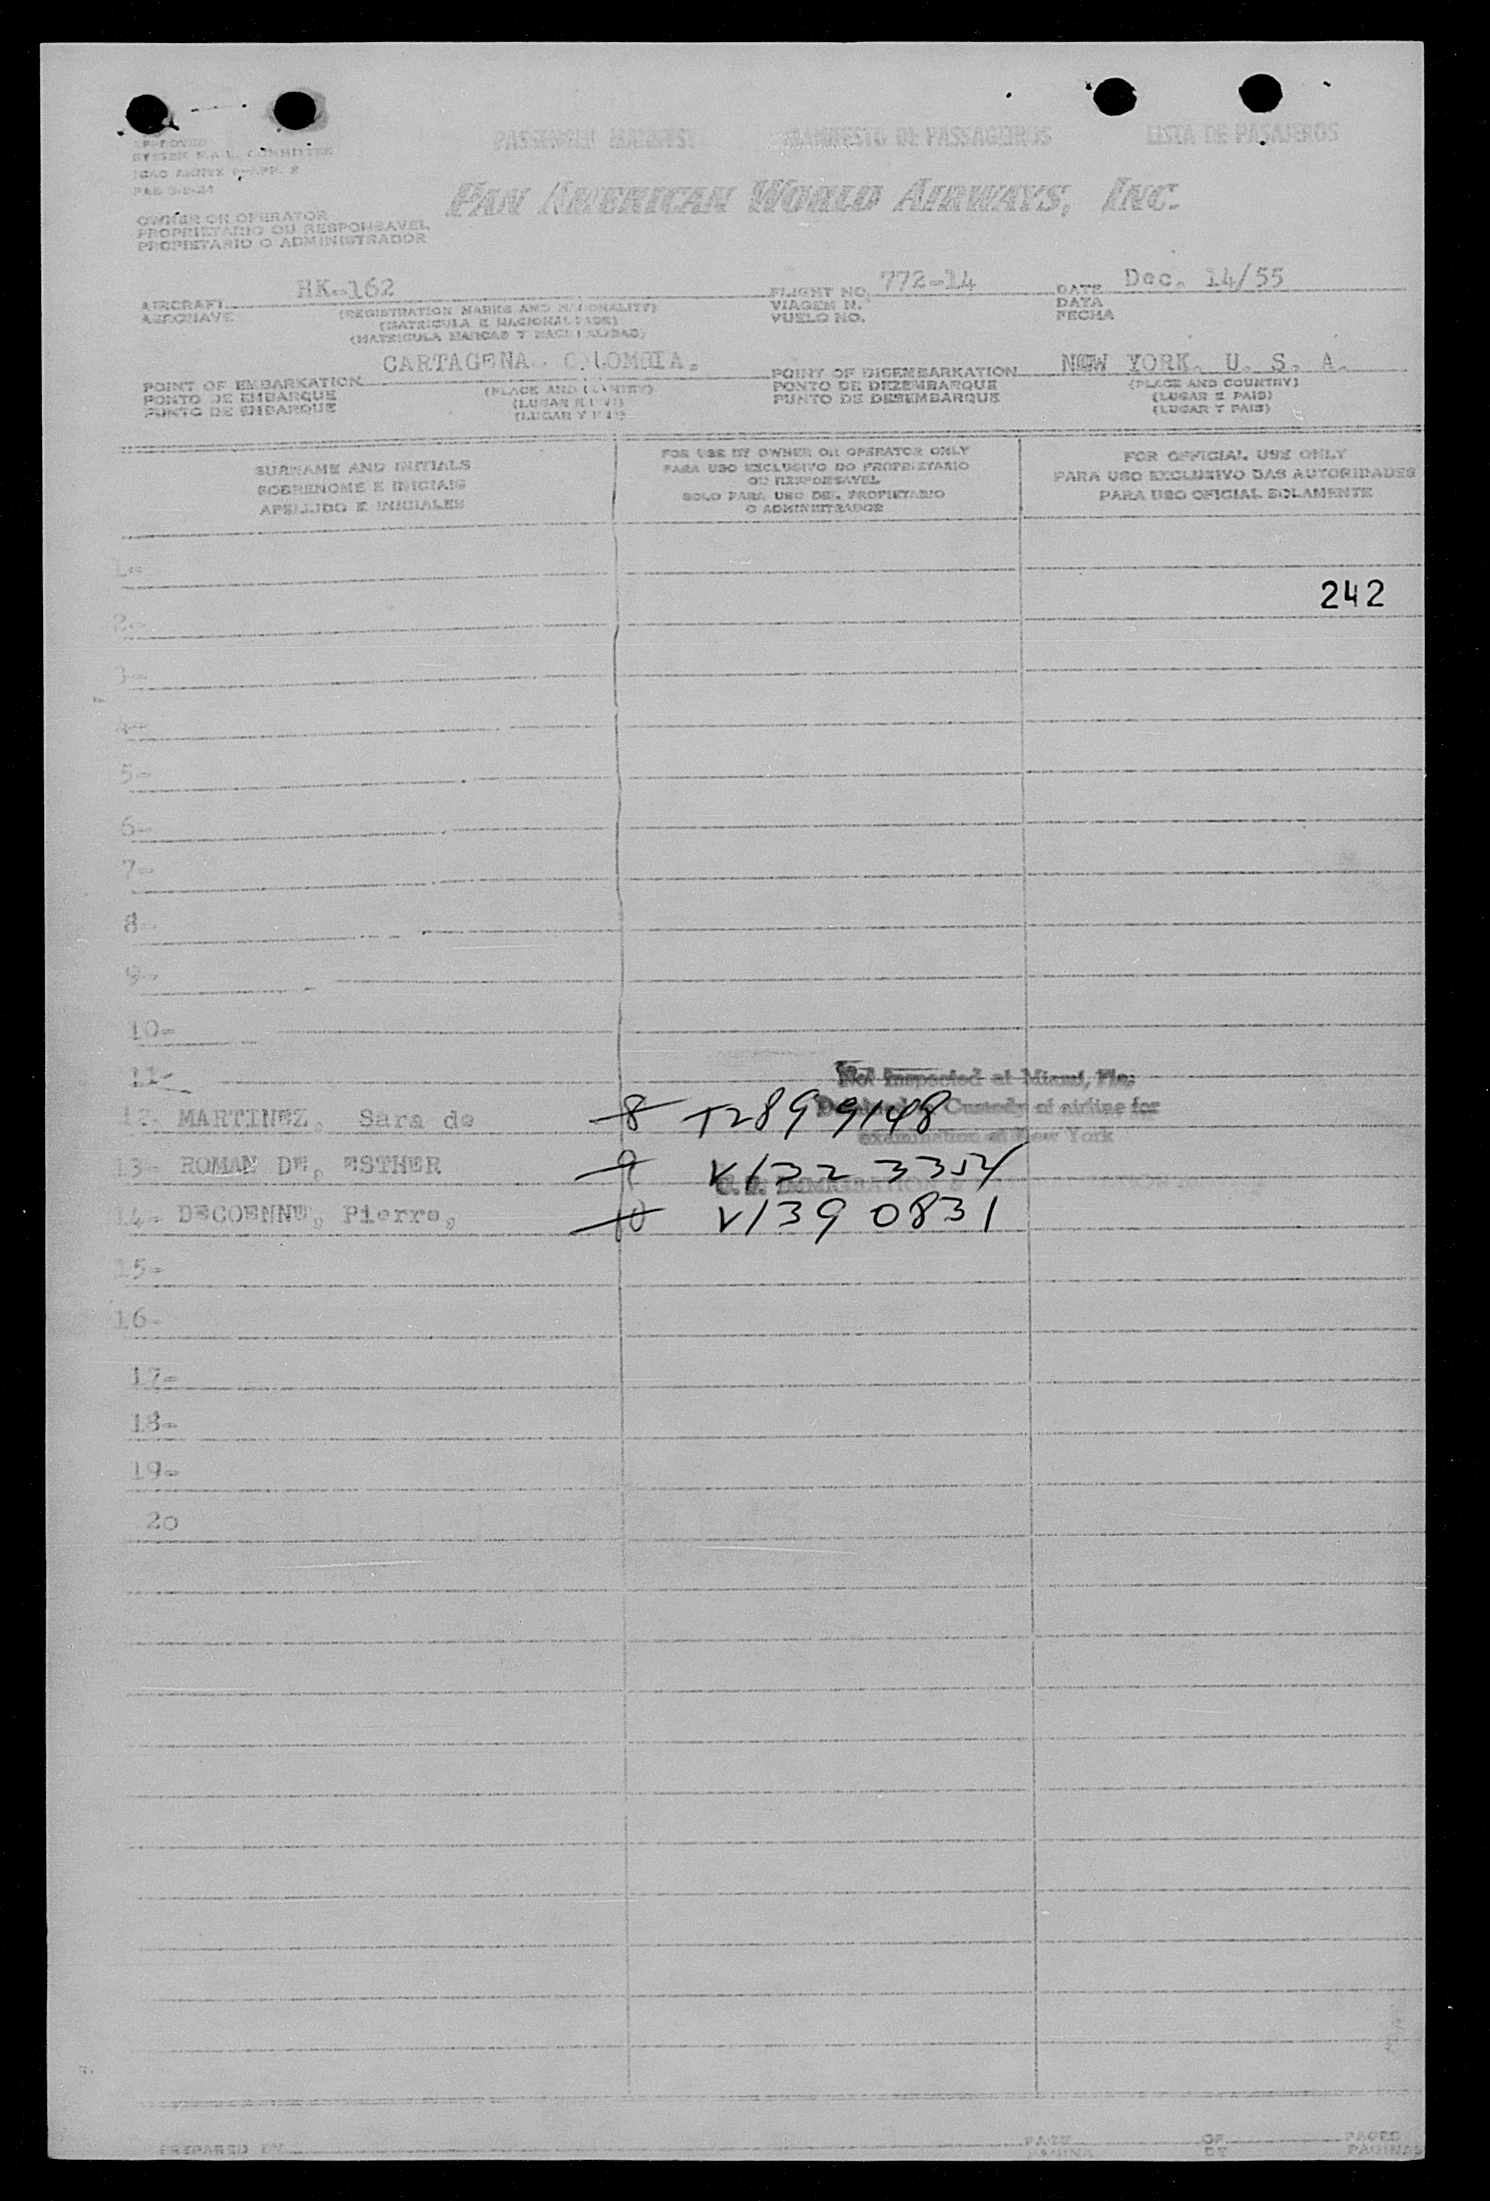 PASSENGER MANIFEST MANIFESTO DE PASSAGEIROS LISTA DE PASAJEROS
APPROVED
SYSTEM F.A.L. COMMITTEE
ICAO ANNEX 9-APP. 2
PAN AMERICAN WORLD AIRWAYS, INC.
OWNER OR OPERATOR
PROPRIETARIO OU RESPONSAVEL
PROPIETARIO O ADMINISTRADOR
AIRCRAFT HK-162 FLIGHT NO. 772-14 DATE Dec. 14/55
AERONAVE (REGISTRATION MARKS AND NATIONALITY) VIAGEM N.º DATA
(MATRICULA E NACIONALIDADE) VUELO NO. FECHA
(MATRICULA MARCAS Y NACIONALIDAD)
POINT OF EMBARKATION CARTAGENA - COLOMBIA. POINT OF DISEMBARKATION NEW YORK. U. S. A.
PONTO DE EMBARQUE (PLACE AND COUNTRY) PONTO DE DEZEMBARQUE (PLACE AND COUNTRY)
PUNTO DE EMBARQUE (LUGAR E PAIS) PUNTO DE DESEMBARQUE (LUGAR E PAIS)
(LUGAR Y PAIS) (LUGAR Y PAIS)
SURNAME AND INITIALS
SOBRENOME E INICIAIS
APELLIDO E INICIALES
FOR USE BY OWNER OR OPERATOR ONLY
PARA USO EXCLUSIVO DO PROPRIETARIO
OU RESPONSAVEL
SOLO PARA USO DEL PROPIETARIO
O ADMINISTRADOR
FOR OFFICIAL USE ONLY
PARA USO EXCLUSIVO DAS AUTORIDADES
PARA USO OFICIAL SOLAMENTE
1-
242
2-
3-
4-
5-
6-
7-
8-
9-
10-
11-
Not Inspected at Miami, Fla.
12. MARTINEZ, Sara de 8 T2899148
Custody of airline for
examination at New York
13- ROMAN DE, ESTHER 9 V1322 3354
U. S. IMMIGRATION
14- DECOENNE, Pierre, 10 V139 0831
15-
16-
17-
18-
19-
20
PREPARED BY PAGE OF PAGES
PAGINA DE PAGINAS